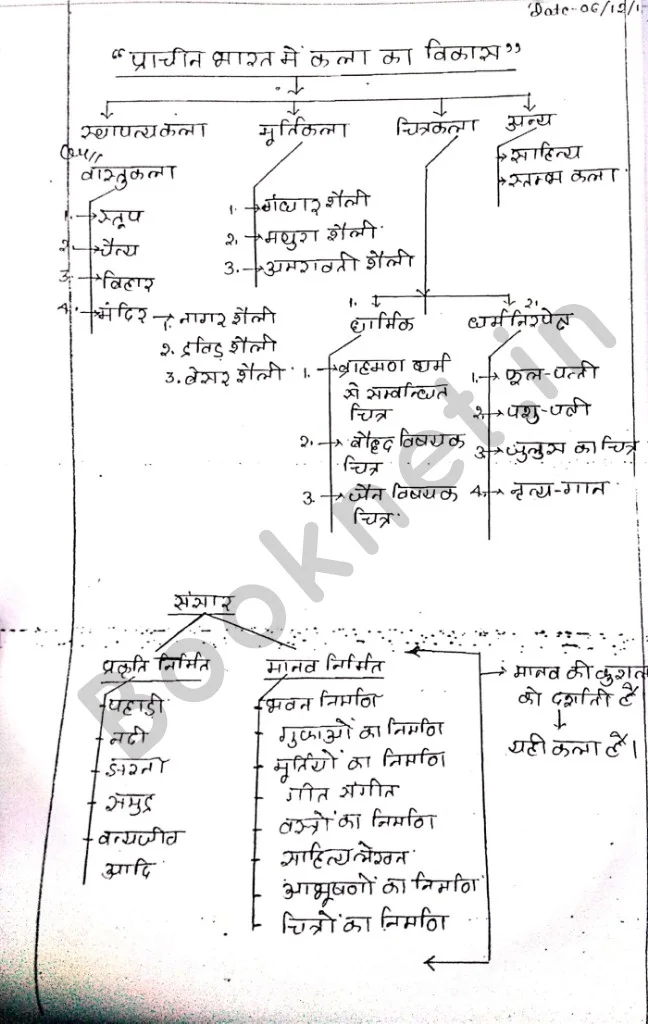 Date-06/12/1
“प्राचीन भारत में कला का विकास”
स्थापत्यकला
मूर्तिकला
चित्रकला
अन्य
वास्तुकला
1. स्तूप
2. चैत्य
3. विहार
4. मंदिर
1. नागर शैली
2. द्रविड़ शैली
3. बेसर शैली
1. गंधार शैली
2. मथुरा शैली
3. अमरावती शैली
साहित्य
स्तम्भ कला
1. धार्मिक
2. धर्मनिरपेक्ष
1. ब्राहमण धर्म
से सम्बन्धित
चित्र
2. बौद्ध विषयक
चित्र
3. जैन विषयक
चित्र
1. फूल-पत्ती
2. पशु-पक्षी
3. जुलुस का चित्र
4. नृत्य-गान
संसार
प्रकृति निर्मित
पहाड़ी
नदी
झरनो
समुद्र
वन्यजीव
आदि
मानव निर्मित
भवन निर्माण
गुफाओं का निर्माण
मूर्तियों का निर्माण
गीत संगीत
वस्त्रों का निर्माण
साहित्य लेखन
आभूषणों का निर्माण
चित्रों का निर्माण
मानव की
को दर्शाती है
यही कला है।
Booknet.in